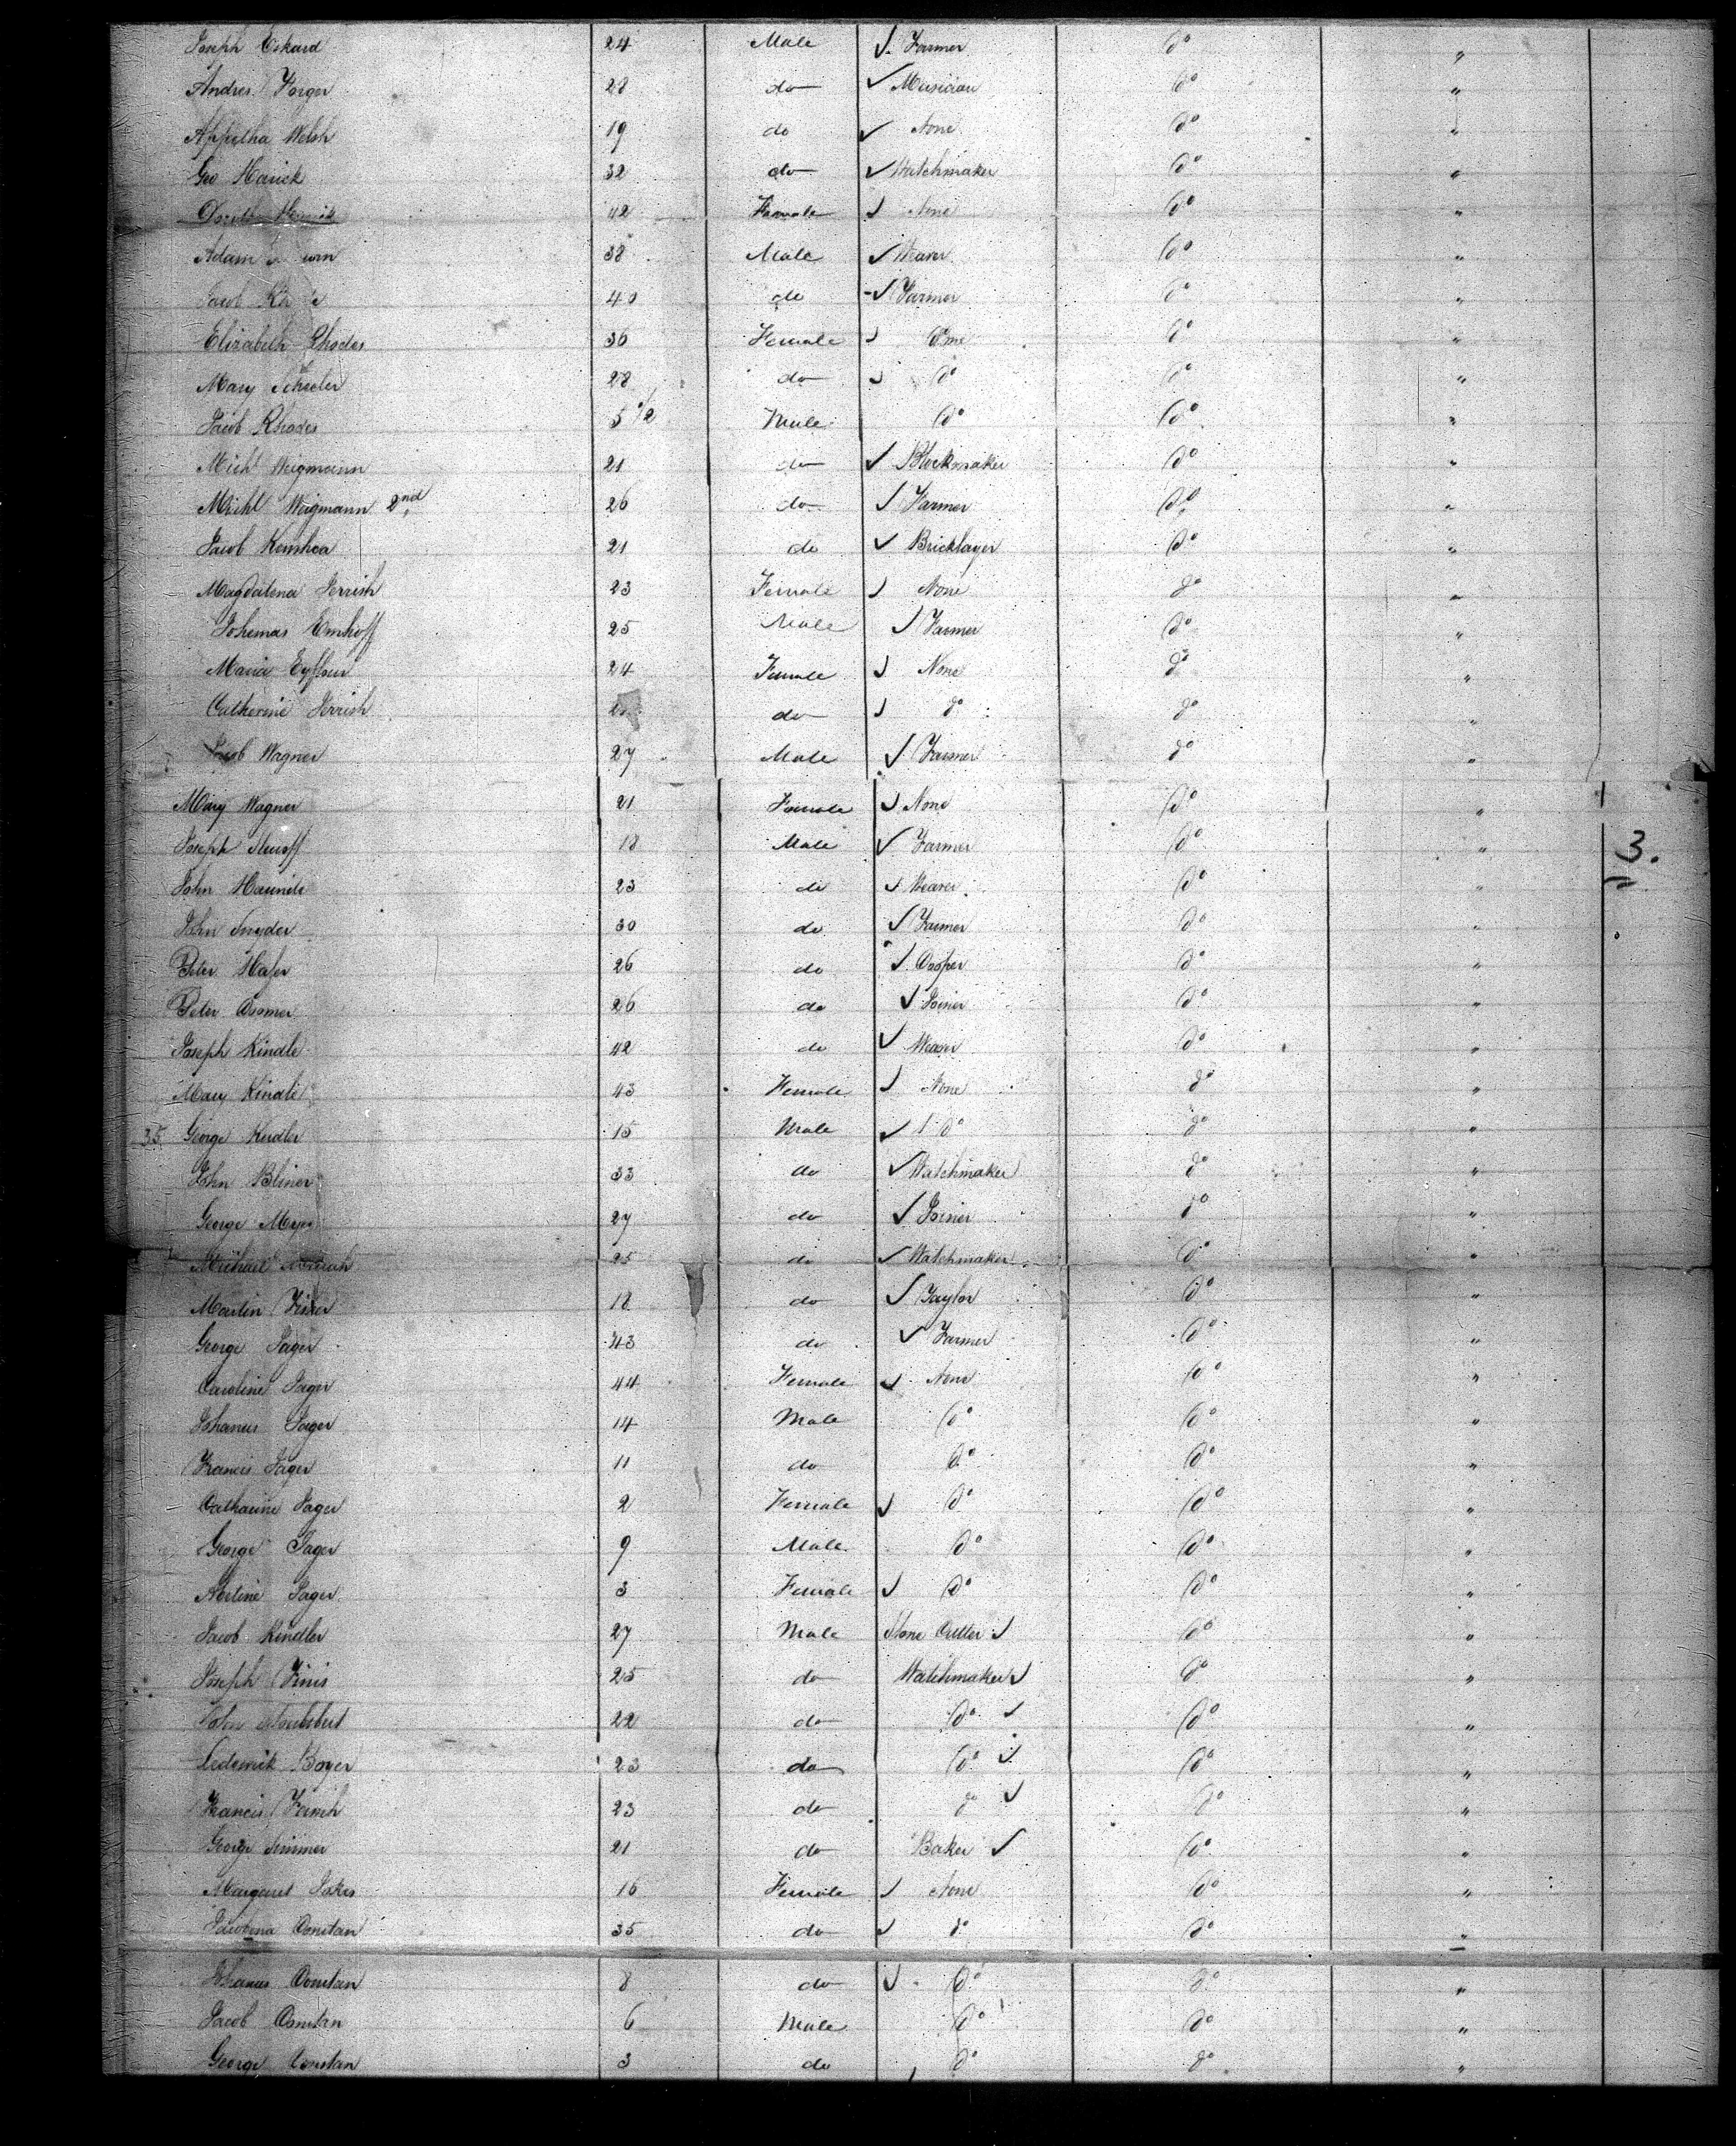 Joseph Eckard 24 Male Farmer do "
Andres Yorger 28 do Musician do "
Appetha Welsh 19 do None do "
Geo Harick 32 do Watchmaker do "
42 Female None do "
Adam 38 Male Weaver do "
Jacob 40 do Farmer do "
Elizabeth Rhodes 36 Female None do "
Mary 28 do do do "
Jacob Rhodes 5 1/2 Male do do "
Michl Weigmann 21 do Blockmaker do "
Michl Weigmann 2nd 26 do Farmer do "
Jacob 21 do Bricklayer do "
Magdalena Jerrish 23 Female None do "
Johemas Emhoff 25 Male Farmer do "
Maria 24 Female None do "
Catherine Jerrish do do do "
Jacob Wagner 27 Male Farmer do "
Mary Wagner 21 Female None do "
Joseph 18 Male Farmer do "
3.
John 23 do Weaver do "
John Snyder 30 do Farmer do "
Peter Hafer 26 do Cooper do "
Peter Cromer 26 do Joiner do "
Joseph Kindle 42 do Weaver do "
Mary Kindle 43 Female None do "
35 George Kindler 15 Male do do "
John Bliner 33 do Watchmaker do "
George Meyer 27 do Joiner do "
Michael 25 do Watchmaker do "
Martin Fisher 18 do Taylor do "
George Jager 43 do Farmer do "
Caroline Jager 44 Female None do "
Johanus Jager 14 Male do do "
Francis Jager 11 do do do "
Catharine Jager 2 Female do do "
George Jager 9 Male do do "
Jager 3 Female do do "
Jacob Kindler 27 Male Stone Cutter do "
Joseph Finis 25 do Watchmaker do "
John 22 do do do "
Federick Boyer 23 do do do "
Francis 23 do do do "
George Simmer 21 do Baker do "
Margaret Jakes 16 Female None do "
Jacobina Constan 35 do do do "
Johanus Constan 8 do do do "
Jacob Constan 6 Male do do "
George Constan 3 do do do "